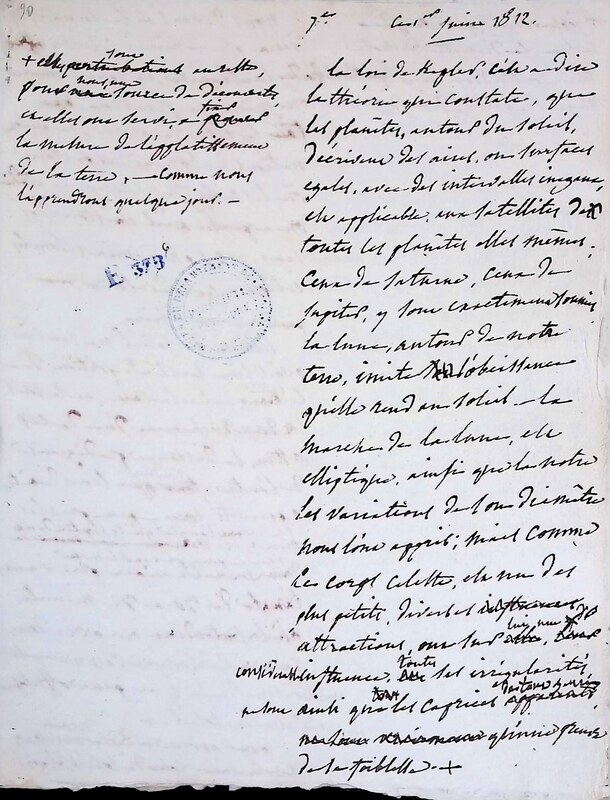 90
7e. Ce 1er juin 1812.
la loi de Kepler, c'est a dire
la théorie qui constate, que
les planètes, autour du soleil,
décrivent des aires, ou surfaces
egales, avec des intervalles inegaux,
est applicable, aux satellites de
toutes les planètes elles mêmes.
Ceux de Saturne, ceux de
Jupiter, y sont exactement soumis
la lune, autour de notre
terre, imite l'obeissance
qu'elle rend au soleil – la
marche de la lune, est
elliptique, ainsi que la notre
les variations de son diamètre
nous l'ont appris ; mais comme
ce corps celeste, est un des
plus petits, diverses influences
attractions, ont sur luy, une
considerable influence. toutes ses irrégularités
ne sont ainsi que les caprices
qu'une preuve
de sa foiblesse. +
+ elles sont au reste,
pour nous une source de découvertes,
et elles ont servi, a
la mesure de l'applatissement
de la terre, – comme nous
l'apprendrons quelque jour. –
E 373 6